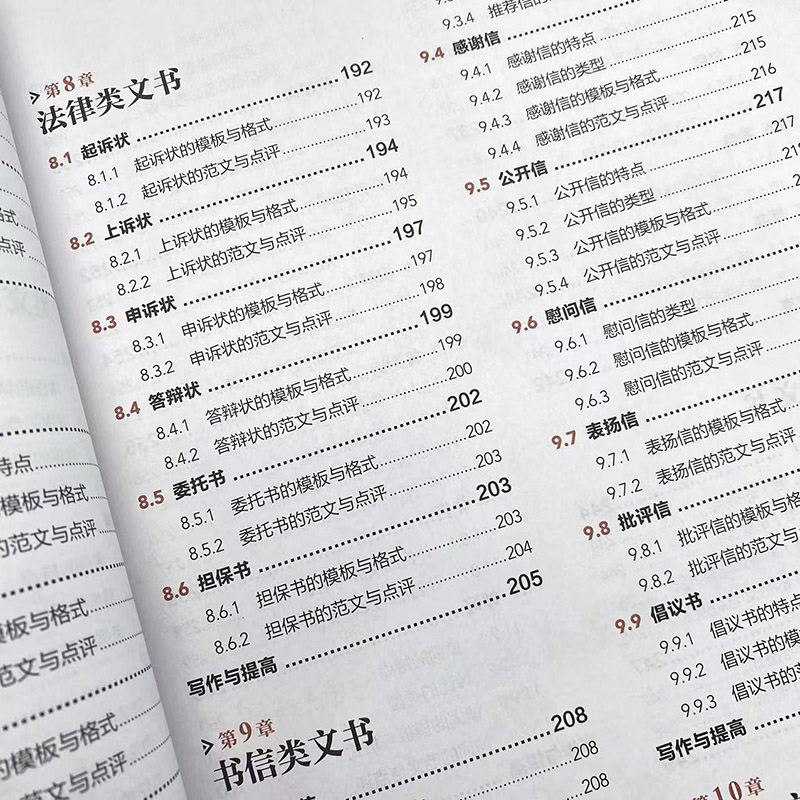 第8章
法律类文书
8.1 起诉状 192
8.1.1 起诉状的模板与格式 192
8.1.2 起诉状的范文与点评 193
8.2 上诉状 194
8.2.1 上诉状的模板与格式 194
8.2.2 上诉状的范文与点评 195
8.3 申诉状 197
8.3.1 申诉状的模板与格式 197
8.3.2 申诉状的范文与点评 198
8.4 答辩状 199
8.4.1 答辩状的模板与格式 199
8.4.2 答辩状的范文与点评 200
8.5 委托书 202
8.5.1 委托书的模板与格式 202
8.5.2 委托书的范文与点评 203
8.6 担保书 203
8.6.1 担保书的模板与格式 203
8.6.2 担保书的范文与点评 204
写作与提高 205
第9章
书信类文书 208
208
208
9.3.4 推荐信
9.4 感谢信
9.4.1 感谢信的特点
9.4.2 感谢信的类型 215
9.4.3 感谢信的模板与格式 215
9.4.4 感谢信的范文与点评 216
9.5 公开信 217
9.5.1 公开信的特点 217
9.5.2 公开信的类型
9.5.3 公开信的模板与格式
9.5.4 公开信的范文与点评
9.6 慰问信
9.6.1 慰问信的类型
9.6.2 慰问信的模板与格式
9.6.3 慰问信的范文与点评
9.7 表扬信
9.7.1 表扬信的模板与格式
9.7.2 表扬信的范文与点评
9.8 批评信
9.8.1 批评信的模板与
9.8.2 批评信的范文与
9.9 倡议书
9.9.1 倡议书的特点
9.9.2 倡议书的模
9.9.3 倡议书的范
写作与提高
第10章